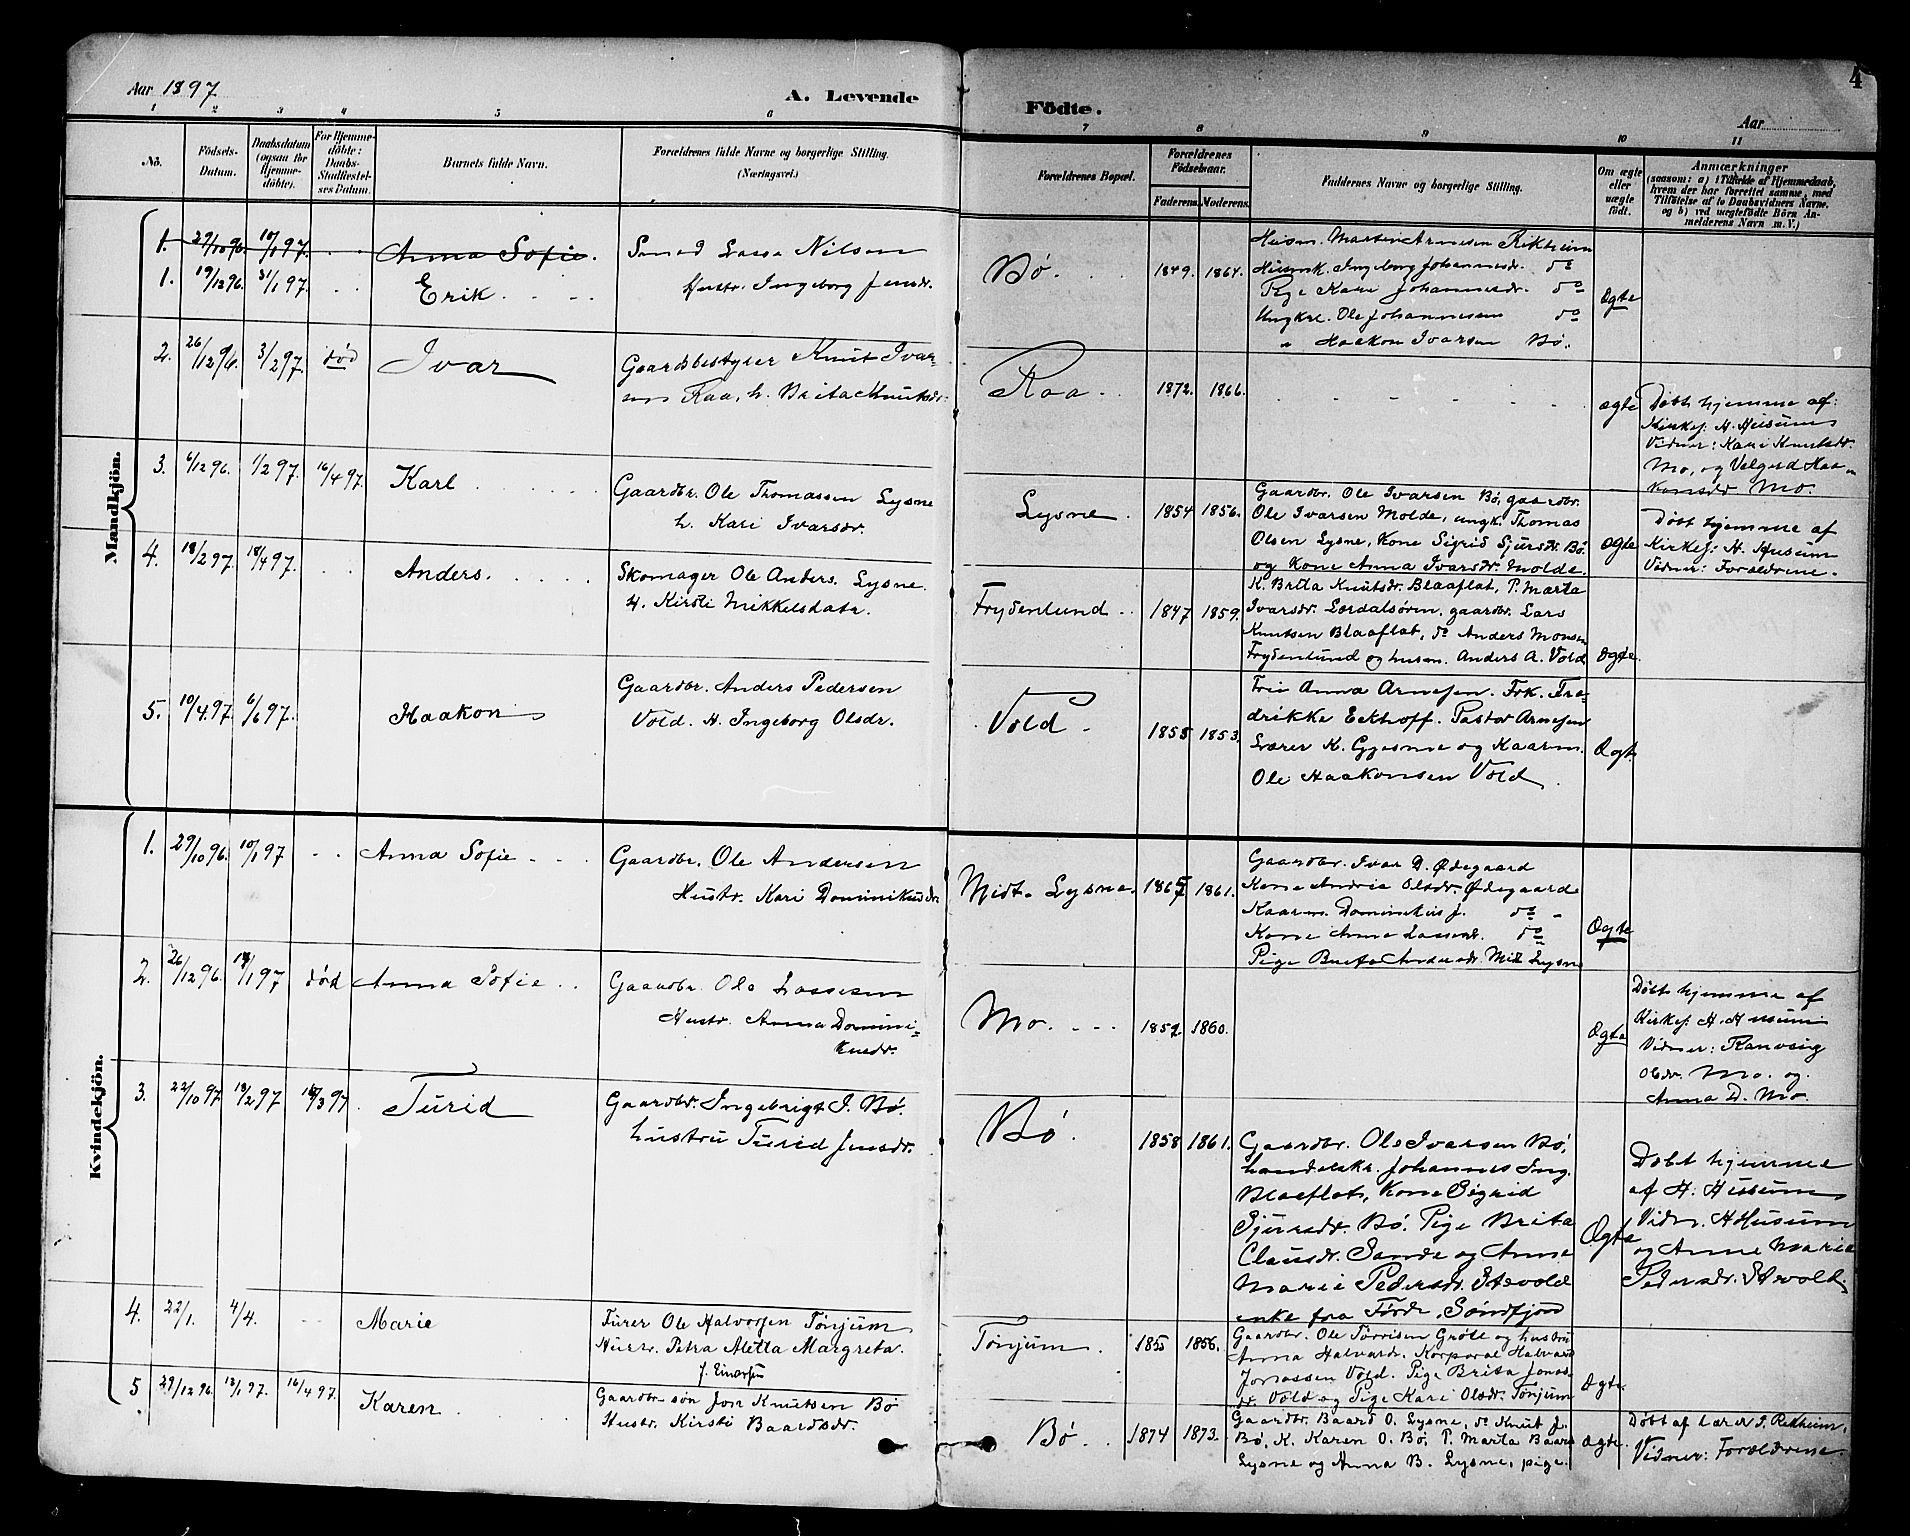 4
Aar 1897
A. Levende
Födte.
Aar
1 2 3 4 5 6 7 8 9 10 11
No.
Födsels-
Datum.
Daabsdatum
(ogsaa for
Hjemme-
döbte).
For Hjemme-
döbte:
Daabs-
Stadfæstel-
ses Datum.
Barnets fulde Navn.
Forældrenes fulde Navne og borgerlige Stilling.
(Næringsvei.)
Forældrenes Bopæl.
Forældrenes
Födselsaar.
Faderens. Moderens.
Faddernes Navne og borgerlige Stilling.
Om ægte
eller
uægte
födt.
Anmærkninger
(saasom: a) i Tilfælde af Hjemmedaab,
hvem der har forrettet samme, med
Tilföielse af to Daabsvidners Navne.
og b) ved uægtefödte Börn An-
melderens Navn m. V.)
Mandkjön.
1. 29/10 96. 10/1 97. Anna Sofie.
1. 19/12 96. 31/1 97. Erik
Smed Lasse Nilsen
Hustr. Ingeborg Jensdr.
Bö. 1849. 1864.
Husm. Martin Arnesen Rikheim
Husmk. Ingeborg Johannesdr. do
Pige Kari Johannesdr. do
Ungkrl. Ole Johannesen do
" Haakon Ivarsen Bö.
Ægte
2. 26/12 96. 3/2 97. död Ivar
Gaardsbestyrer Knut Ivar-
sen Raa, h. Brita Knutsdr.
Raa. 1872. 1866.
ægte
Döbt hjemme af:
Kirkes: H. Husum
Vidner: Kari Knutsdr.
Mo, og Valgerd Haa-
konsdr Mo.
3. 6/12 96. 1/2 97. 16/4 97. Karl
Gaardbr. Ole Thomassen Lysne
h. Kari Ivarsdr.
Lysne. 1854 1856.
Gaardbr. Ole Ivarsen Bö, gaardbr.
Ole Ivarsen Molde, ungk. Thomas
Olsen Lysne, Kone Sigrid Sjursdr. Bö
og Kone Anna Ivarsdr. Molde.
Ægte
Döbt hjemme af
Kirkes: H. Husum
Vidner: Forældrene.
4. 18/2 97. 18/4 97. Anders.
Skomager Ole Anders. Lysne.
H. Kirsti Mikkelsdatr.
Frydenlund 1847 1859.
K. Brita Knutsdr. Blaaflat, P. Marta
Ivarsdr. Lærdalsören, gaardbr. Lars
Knutsen Blaaflat, do Anders Monsen
Frydenlund og husm. Anders A. Vold
Ægte.
5. 10/4. 97. 6/6 97. Haakon
Gaardbr. Anders Pedersen
Vold. H. Ingeborg Olsdr.
Vold. 1855 1853.
Frue Anna Arnesen. Frk. Fre-
drikke Eckhoff. Pastor Arnesen
Lærer K. Gjesme og Kaarm.
Ole Haakonsen Vold
Ægt.
Kvindekjön.
1. 29/10 96. 10/1 97 Anna Sofie
Gaardbr. Ole Andersen
Hustr. Kari Dominikusdr.
Midt. Lysne. 1861.
Gaardbr. Ivar D. Ödegaard
Kone Andria Olsdr. Ödegaard
Kaarm. Dominikus J. do
Kone Anna Lassedr. do
Pige Andersdr. Midt Lysne
Ægte
2. 26/12 96. 1/97 död Anna Sofie
Gaardbr. Ole Lassesen
Hustr. Anna Domini-
kusdr.
Mo. 1852 1860.
Ægte
Döbt hjemme af
Kirkes: H. Husum
Vidner: Ranveig
Olsdr. Mo. og
Anna D. Mo.
3. 22/10 97 13/2 97 /3 97 Turid
Gaardbr. Ingebrigt J. Bö.
hustru Turid Jensdr.
Bö. 1858 1861.
Gaardbr. Ole Ivarsen Bö,
handelskr. Johannes Ing.
Blaaflat, Kone Sigrid
Sjursdr. Bö. Pige Brita
Clausdr. Sande og Anne
Marie Pedersdr. Stevold
enke fra Förde, Söndfjord
Ægte
Döbt hjemme
af H. Husum
Vidn. H Husum
og Anne Marie
Pedersdr. Stevold.
4. 22/1. 4/4. Marie
Furer Ole Halvorsen Tönjum
Hustr. Petra Metta Margreta.
f. Einarsen
Tönjum. 1855 1856.
Gaardbr. Ole Törrisen Gröte og hustru
Anna Halvardr. Korporal Halvard
Jonassen Vold. Pige Brita Jonas-
dr. Vold og Pige Kari Olsdr. Tönjum
Ægte.
5 29/12 96. 13/1 97. 16/4 97. Karen
Gaardbr. sön Jon Knutsen Bö
Hustr. Kirsti Baardsdr.
Bö. 1874 1873.
Gaardbr. Baard O. Lysne, do Knut J.
Bö, K. Karen O. Bö, P. Marta Baards
Lysne og Anna B. Lysne, pige.
Ægte.
Döbt af Lærer J. Rikheim,
Vidner: Forældrene.